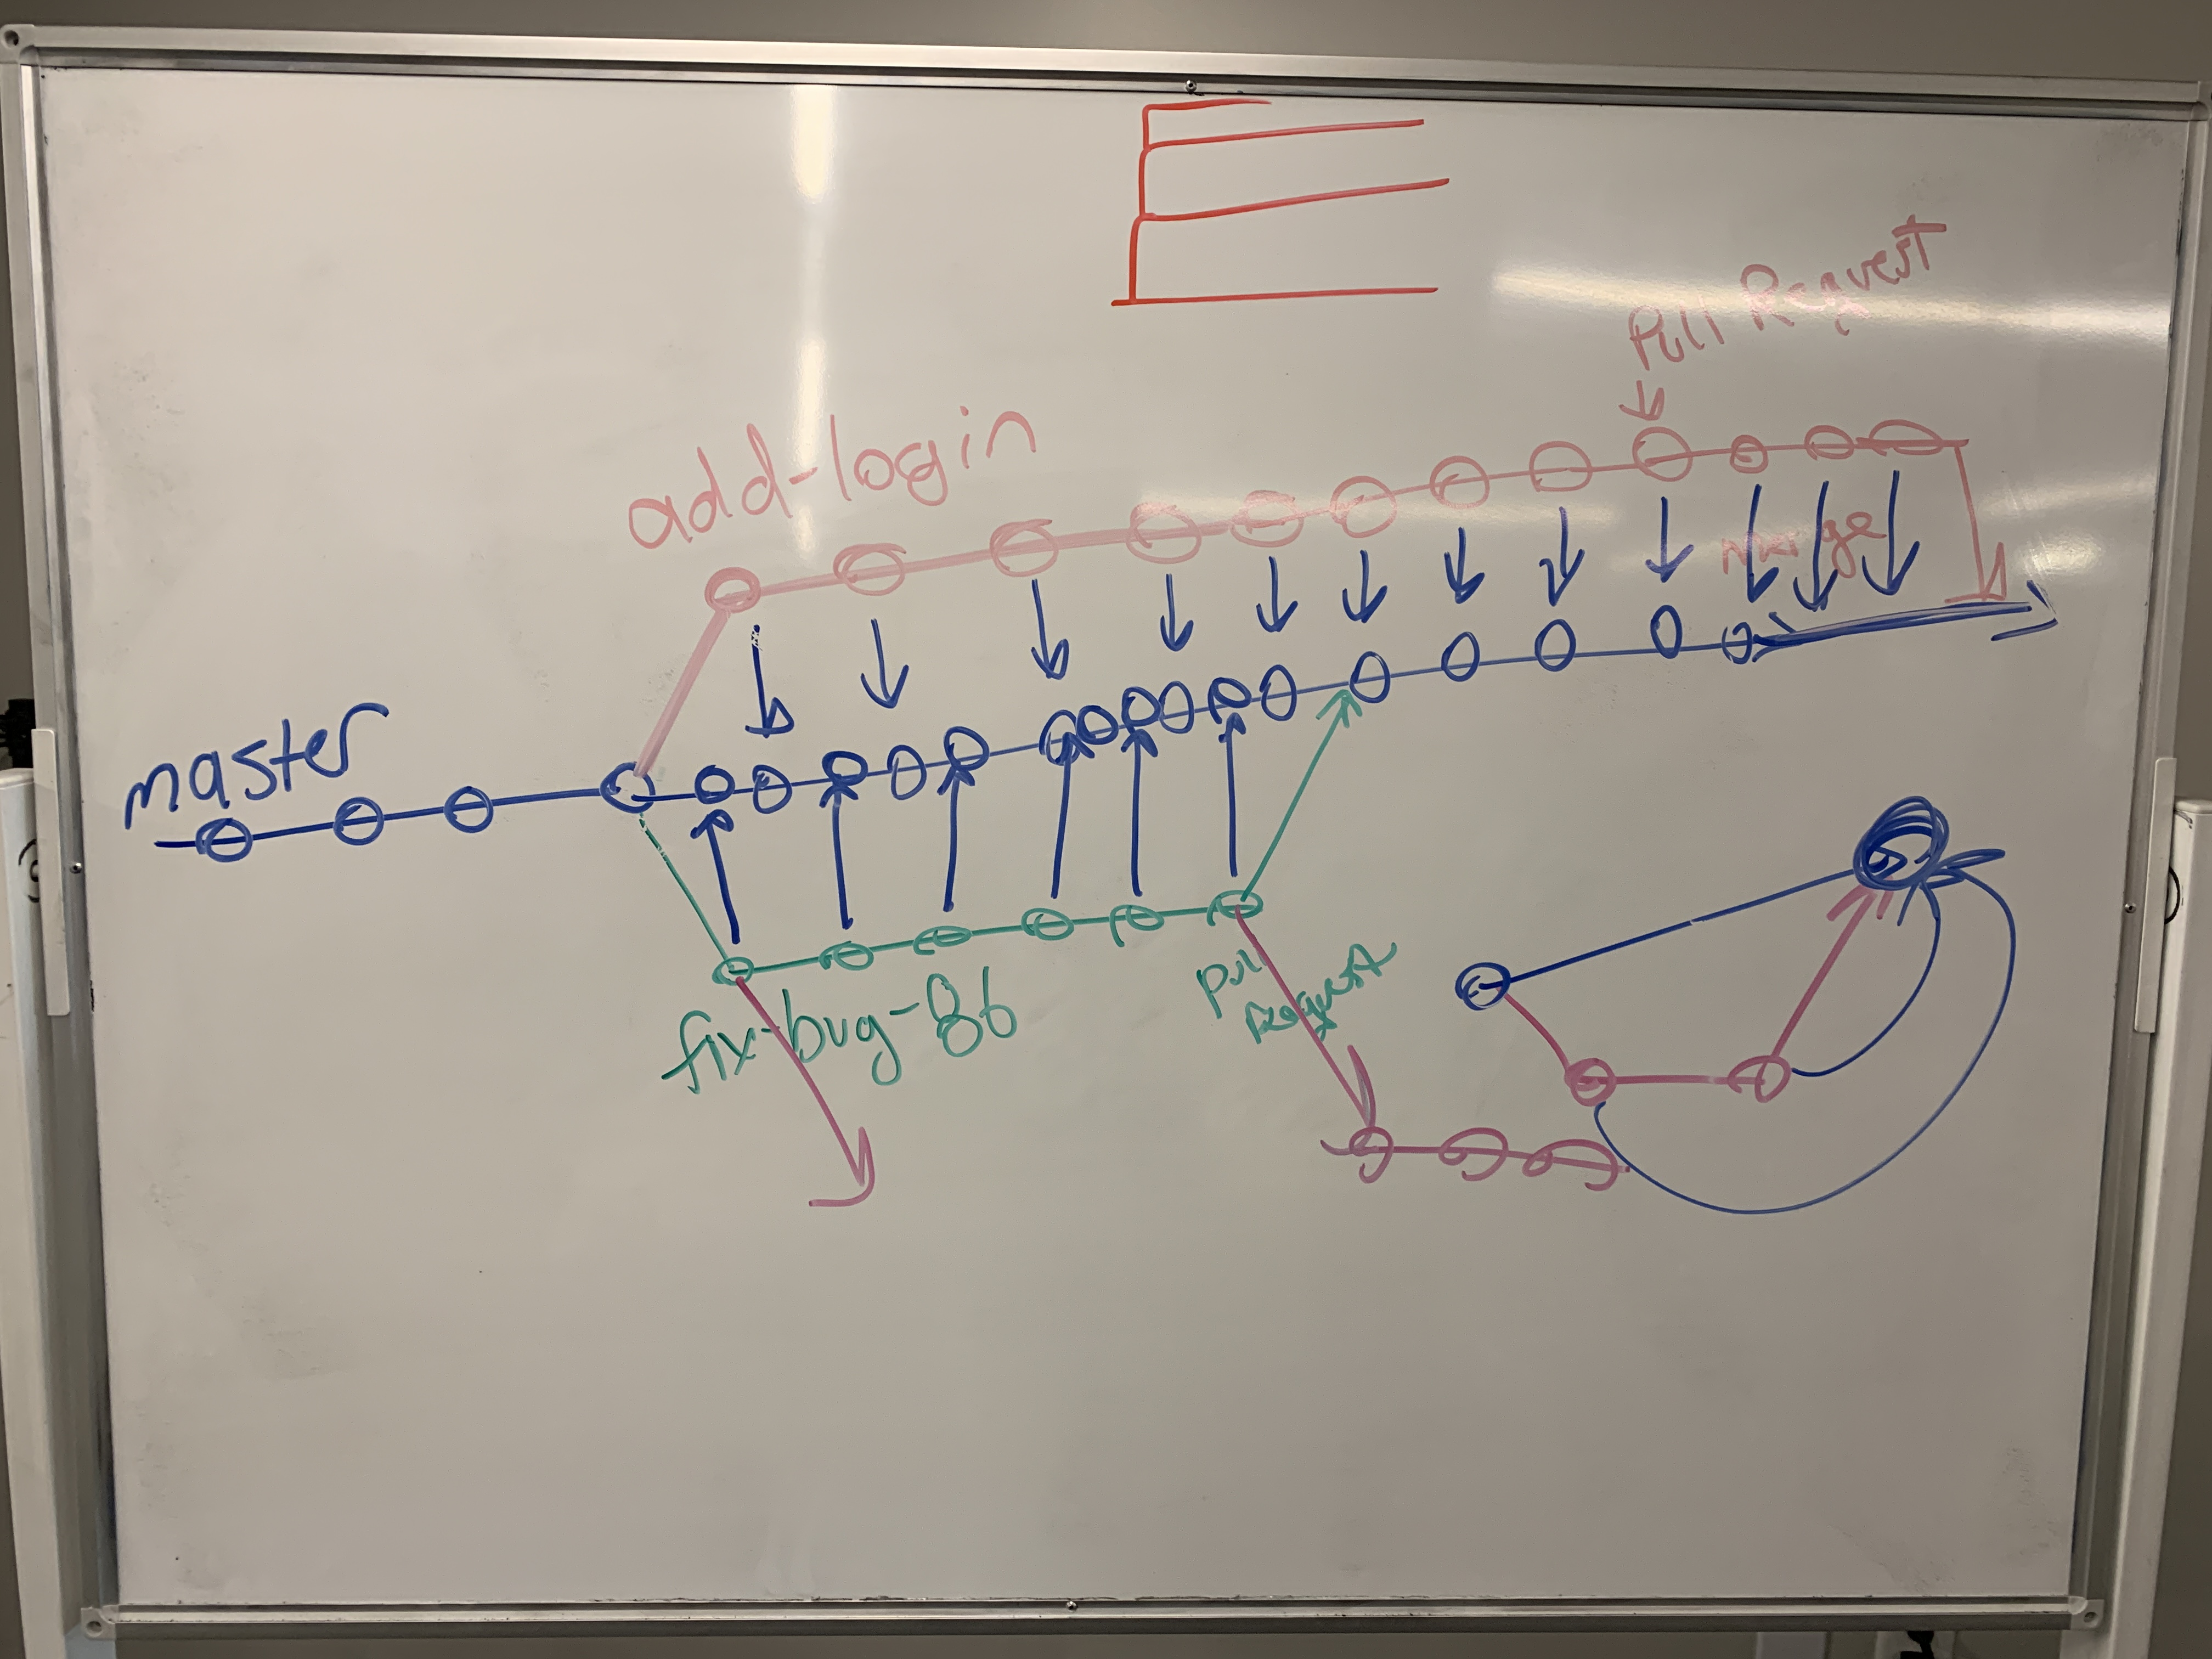 Pull Request
add-login
merge
master
fix-bug-86
pull
request